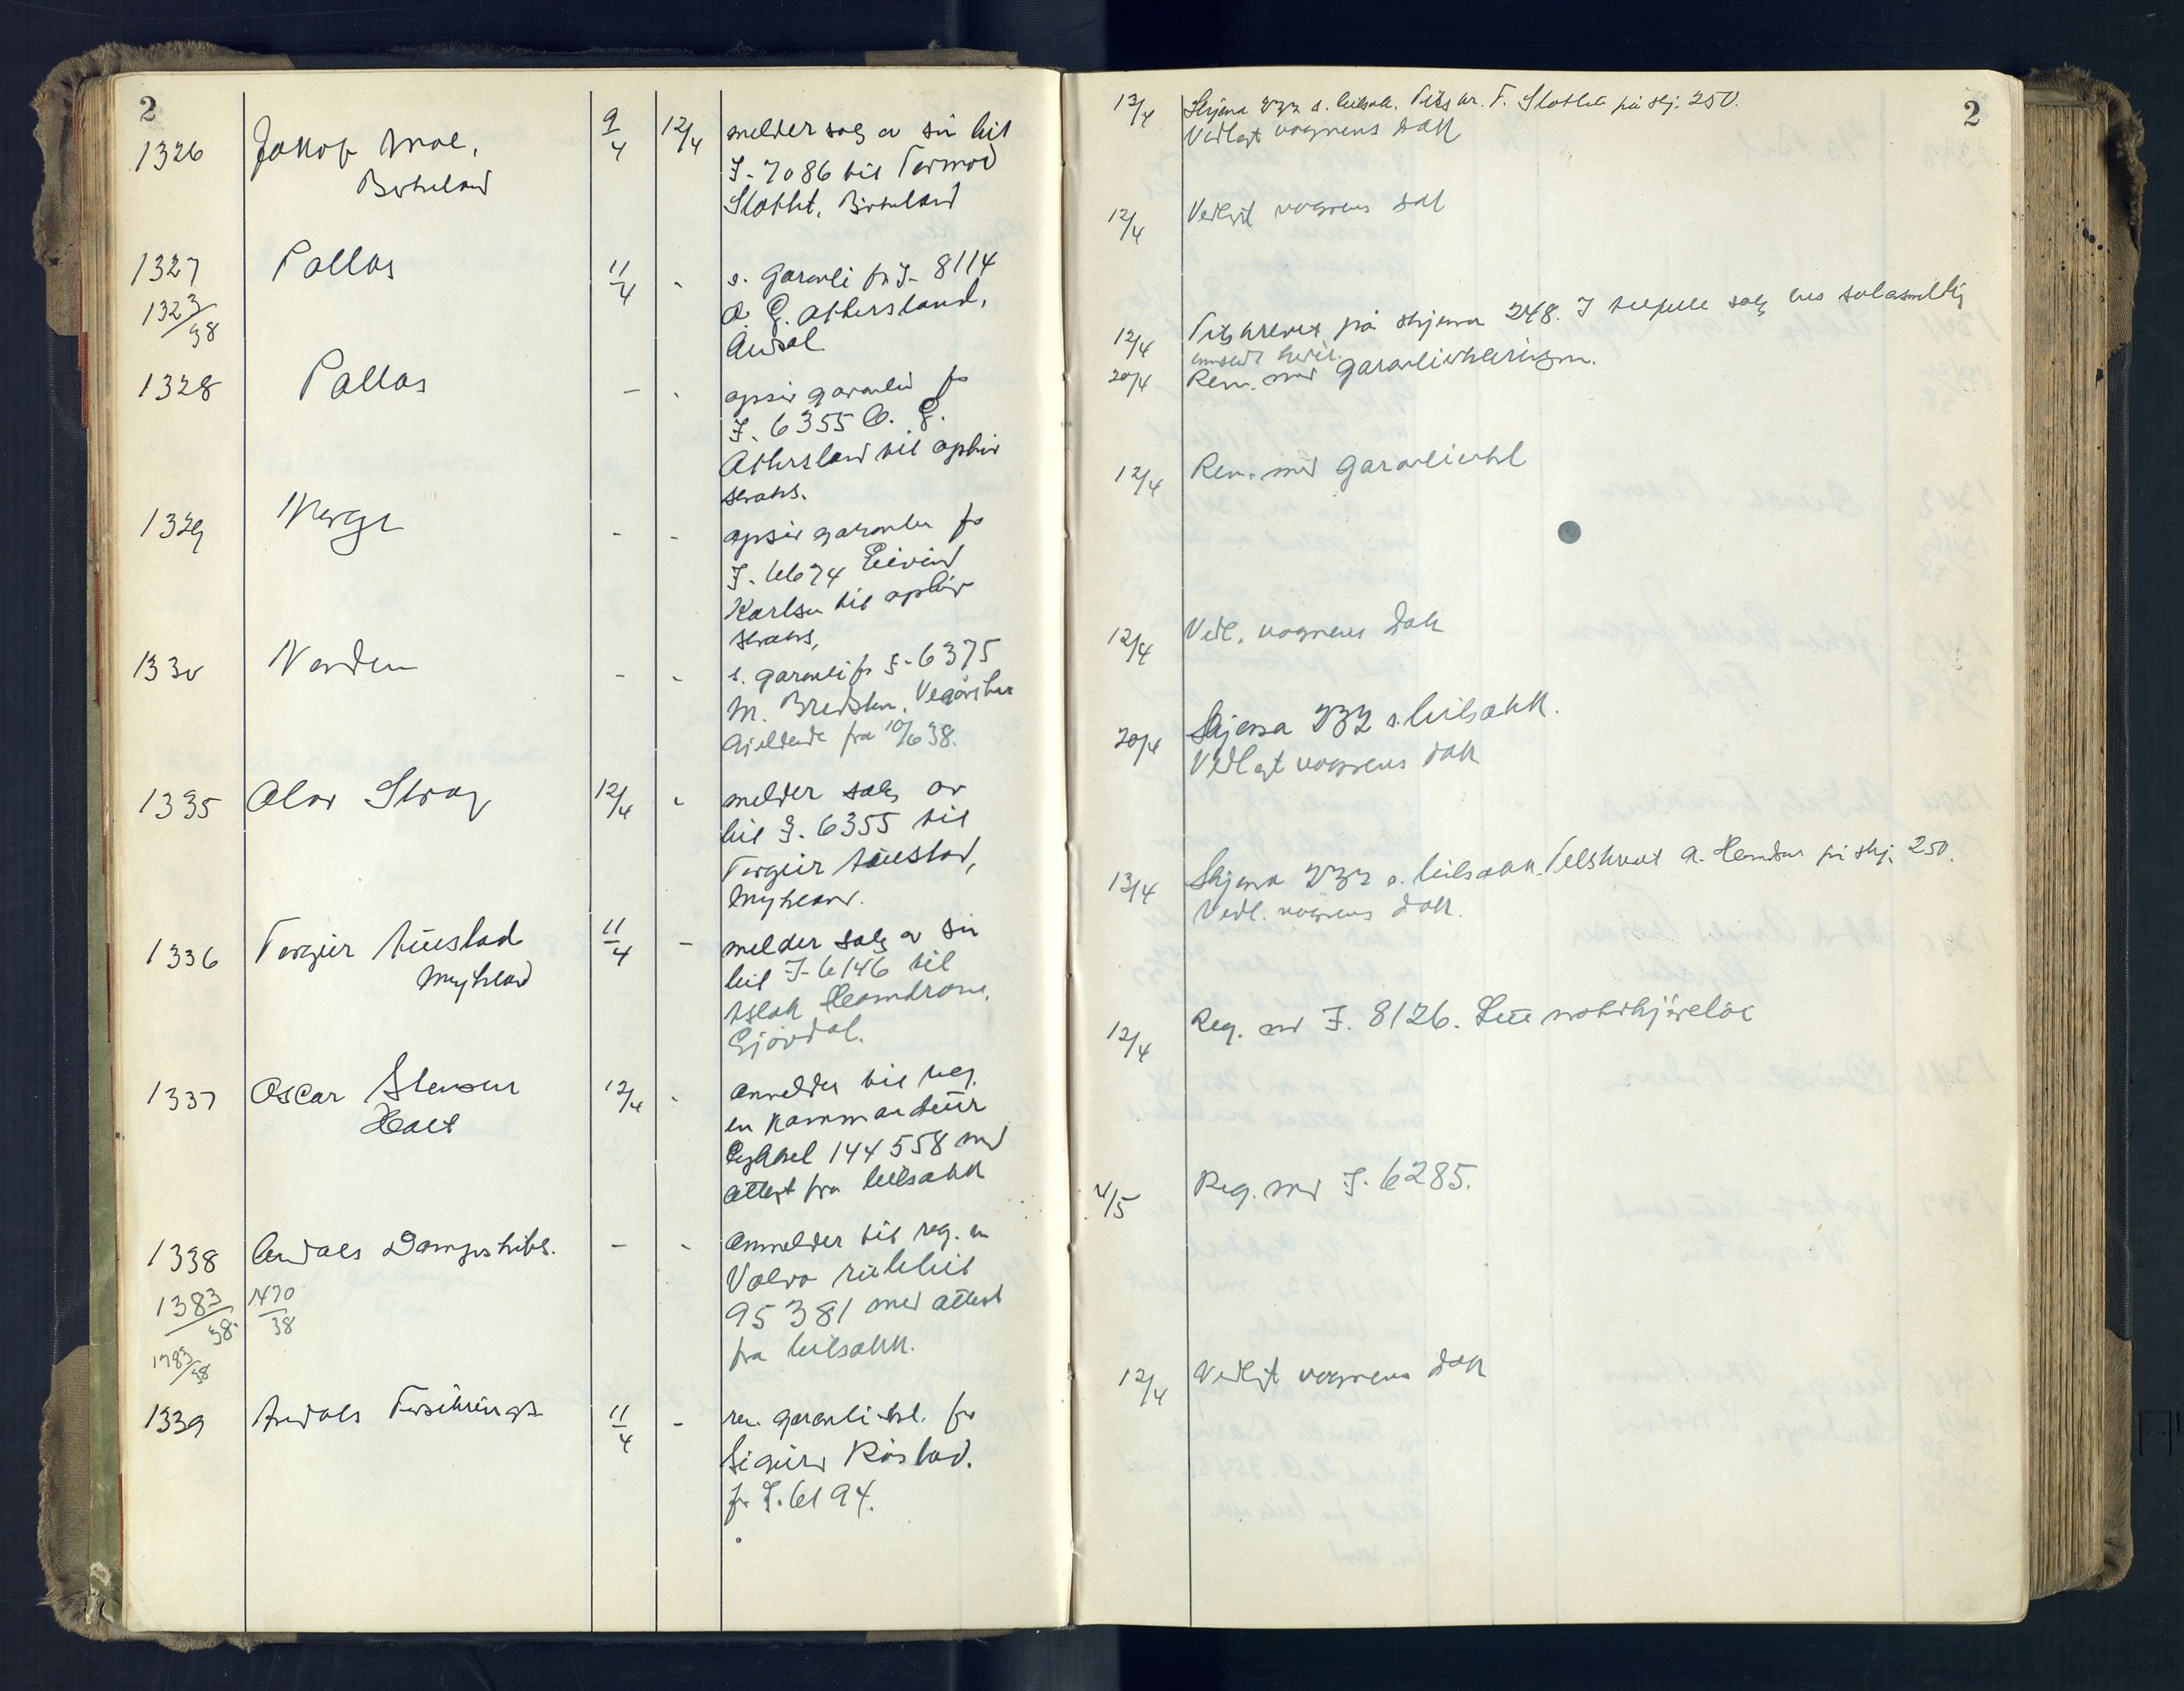 2
1326 Jakob Moe, 9/4 12/4 melder salg av sin bil
Birkeland I-7086 til Tormod
Slottet, Birkeland
1327 Pallas 11/4 - s. garanti for I- 8114
1323/38 O. G. Akersland,
Arendal
1328 Pallas - - opsier garanti for
I. 6355 O. G.
Akersland til ophør
straks.
1329 Norge - - opsier garantien for
I. 6674 Eivind
Karlsen til ophør
straks,
1330 Norden - - s. garanti for I-6375
M. Bredsten, Vegårshei
Gjeldende fra 10/6 38.
1335 Olav Skrog 12/4 - melder salg av
bil I. 6355 til
Torgeir Austad,
Mykland.
1336 Torgeir Austad 11/4 - melder salg av sin
Mykland bil I-6146 til
Aslak
Gjøvdal.
1337 Oscar Stensen 12/4 - anmelder til reg.
Holt en Kommandeur
Sykkel 144558 med
attest fra bilsakk
1338 Arendals Dampskibs. - - anmelder til reg. en
1383/38 1470/38 Volvo rutebil
1783/38 95381 med attest
fra bilsakk.
1339 Arendals Forsikrings. 11/4 - ren. garanti for
Sigurd Røstad.
for I. 6194.
2
13/4 Skjema 232 s. bilsakk. Tilskr. T. Slottet på skj. 250.
Vedlagt vognens dok
12/4 Vedlagt vognens dok
12/4 Tilskrevet på skjema 248. I tilfelle salg bes salgsmelding
innsendt hertil.
20/4 Ren. med garantierklæringen.
12/4 Ren. med garantierkl
12/4 Vedl. vognens dok
20/4 Skjema 232 s. bilsakk.
Vedlagt vognens dok
13/4 Skjema 232 s. bilsakk. Tilskrevet A. på skj. 250.
Vedl. vognens dok.
12/4 Reg. med I. 8126.
4/5 Reg. med I. 6285.
12/4 Vedlagt vognens dok